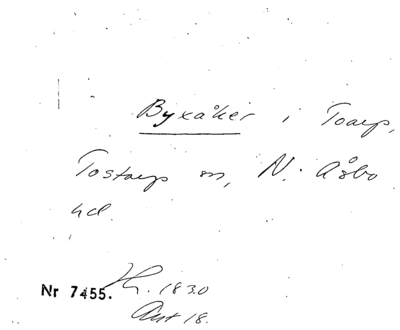 Byxåker i Toarp,
Tostarp sn, N. Åsbo
hd.
Nr 7455. 1830
Akt 18.